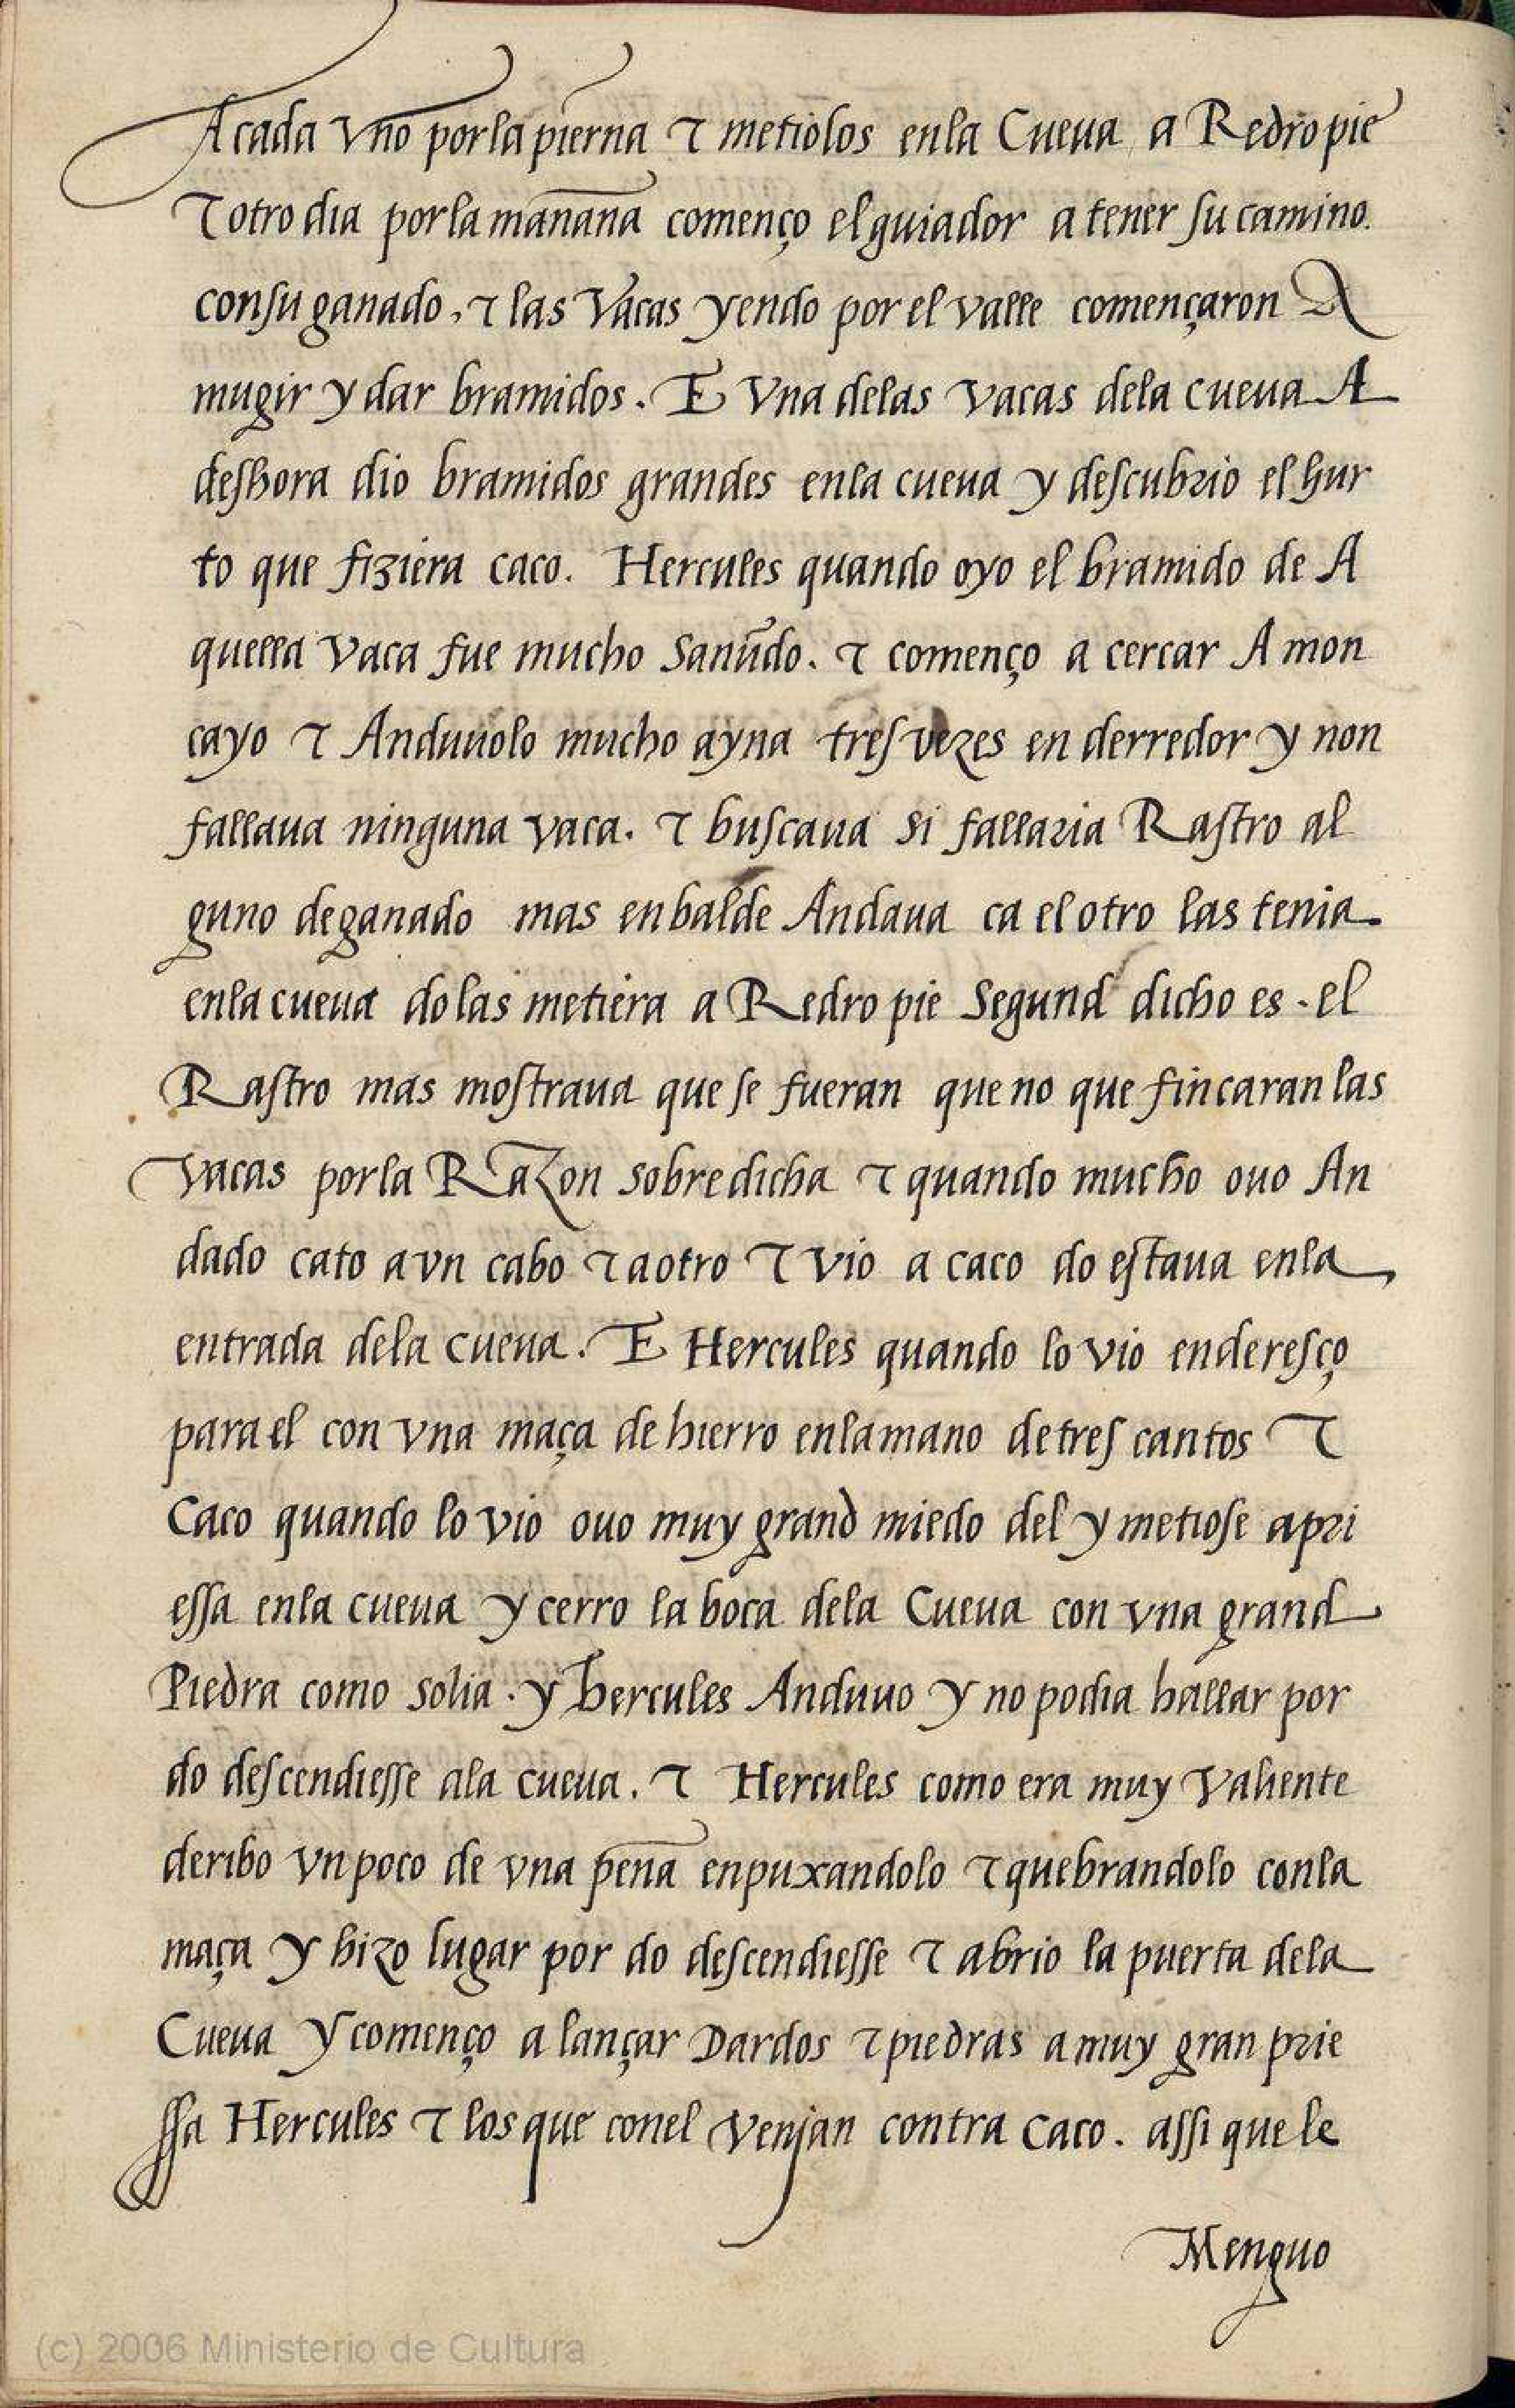 Acada vno porla pierna τ metiolos enla Cueua a Redropie
τ otro dia porla mañana començo el guiador a tener su camino.
consu ganado, τ las Vacas yendo por el valle començaron A
mugir y dar bramidos. E Vna delas vacas dela cueua A
deshora dio bramidos grandes enla cueua y descubrio el hur
to que fiziera caco. Hercules quando oyo el bramido de A
quella Vaca fue mucho sañudo. τ començo a cercar A mon
cayo τ Anduuolo mucho ayna tres vezes en derredor y non
fallaua ninguna vaca. τ buscaua si fallaria Rastro al
guno de ganado mas enbalde Andaua ca el otro las tenia
enla cueua do las metiera a Redro pie Segund dicho es. el
Rastro mas mostraua que se fueran que no que fincaran las
vacas porla Razon sobredicha τ quando mucho ouo An
dado cato a vn cabo τ a otro τ vio a caco do estaua enla
entrada dela cueua. E Hercules quando lo vio enderesço
para el con vna maça de hierro enla mano de tres cantos τ
Caco quando lo vio ouo muy grand miedo del y metiose apri
essa enla cueua y cerro la boca dela Cueua con vna grand
Piedra como solia. y hercules Anduuo y no podia hallar por
do descendiesse ala cueua. τ Hercules como era muy Valiente
deribo vn poco de vna peña enpuxandolo τ quebrandolo conla
maça y hizo lugar por do descendiesse τ abrio la puerta dela
Cueua y començo a lançar Dardos τ piedras a muy gran prie
ssa Hercules τ los que conel venjan contra Caco. assi que le
Menguo
(c) 2006 Ministerio de Cultura